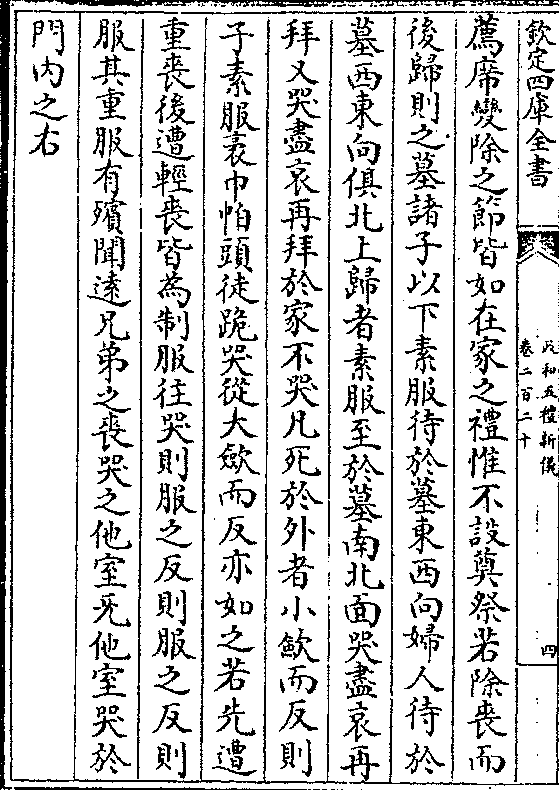 欽定四庫全書
政和五禮新儀
卷二百二十
四
薦席變除之節皆如在家之禮惟不設奠祭若除喪而
後歸則之墓諸子以下素服待於墓東西向婦人待於
墓西東向俱北上歸者素服至於墓南北面哭盡哀再
拜又哭盡哀再拜於家不哭凡死於外者小歛而反則
子素服裹巾帕頭徒跣哭從大歛而反亦如之若先遭
重喪後遭輕喪皆為制服往哭則服之反則服之反則
服其重服有殯聞逺兄弟之喪哭之他室旡他室哭於
門内之右